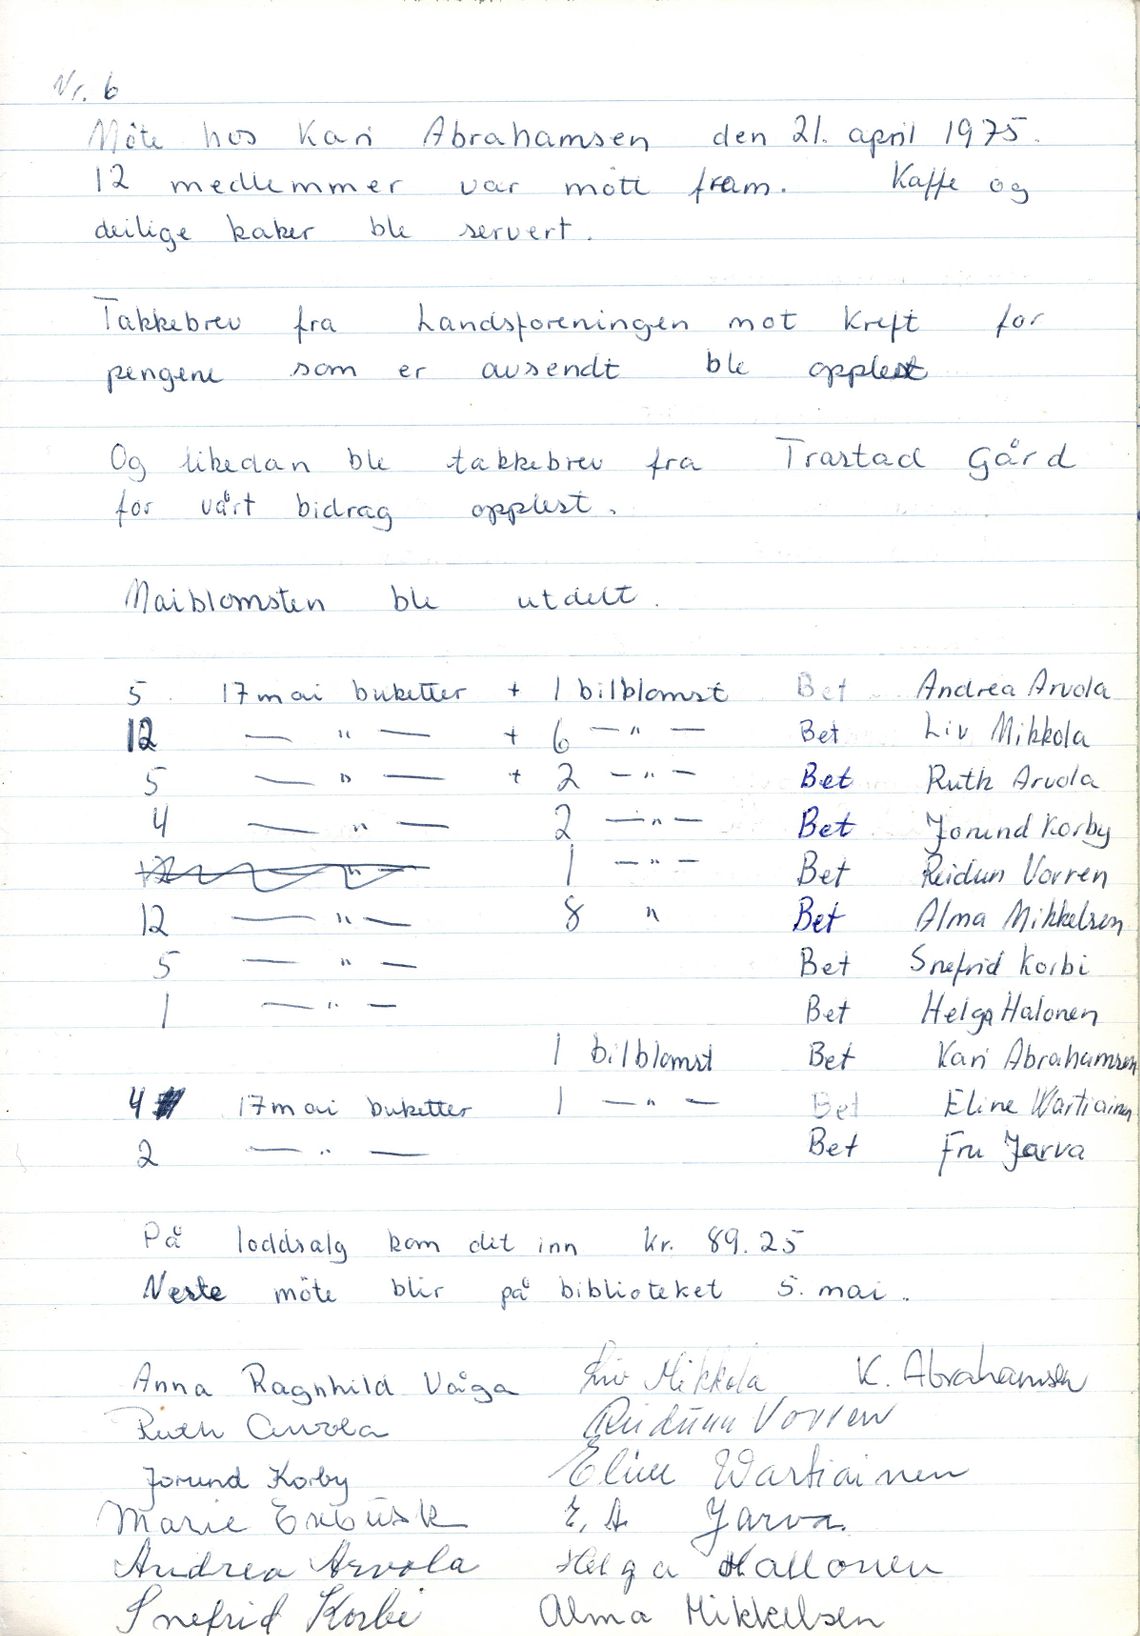 Nr. 6
Möte hos Kari Abrahamsen den 21. april 1975.
12 medlemmer var mött fram. Kaffe og
deilige kaker ble servert.
Takkebrev fra Landsforeningen mot Kreft for
pengene som er avsendt ble opplest
Og likedan ble takkebrev fra Trastad Gård
for vårt bidrag opplest.
Maiblomsten ble utdelt.
5 17 mai buketter + 1 bilblomst Bet Andrea Arvola
12 — " — + 6 — " — Bet Liv Mikkola
5 — " — + 2 — " — Bet Ruth Arvola
4 — " — 2 — " — Bet Jorund Korby
1 — " — Bet Reidun Vorren
12 — " — 8 " Bet Alma Mikkelsen
5 — " — Bet Snefrid Korbi
1 — " — Bet Helga Halonen
1 bilblomst Bet Kari Abrahamsen
4 17 mai buketter 1 — " — Bet Eline Wartiainen
2 — " — Bet Fru Jarva
På loddsalg kom det inn kr. 89.25
Neste möte blir på biblioteket 5. mai.
Anna Ragnhild Våga Liv Mikkola K. Abrahamsen
Ruth Arvola Reidunn Vorren
Jorund Korby Eline Wartiainen
Marie E. A Jarva.
Andrea Arvola Helga Hallonen
Snefrid Korbi Alma Mikkelsen